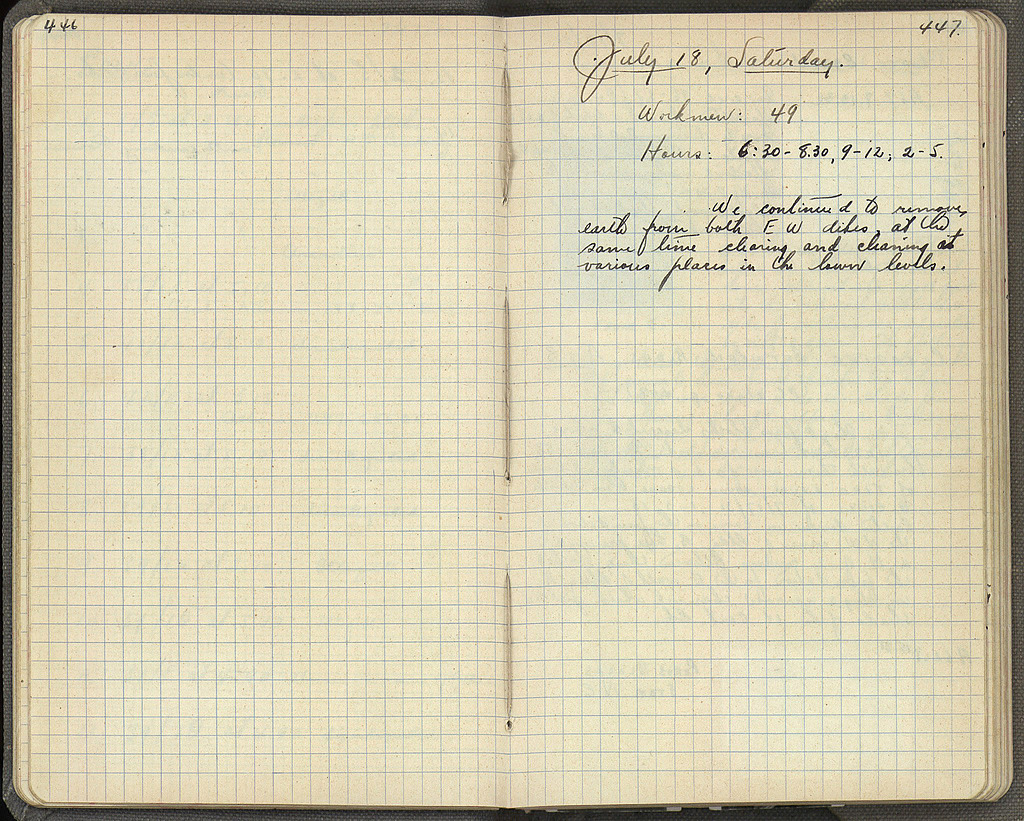 446
447.
July 18, Saturday.
Workmen: 49.
Hours: 6:30-8.30, 9-12; 2-5.
We continued to remove
earth from both E W dikes, at the
same time clearing and cleaning at
various places in the lower levels.